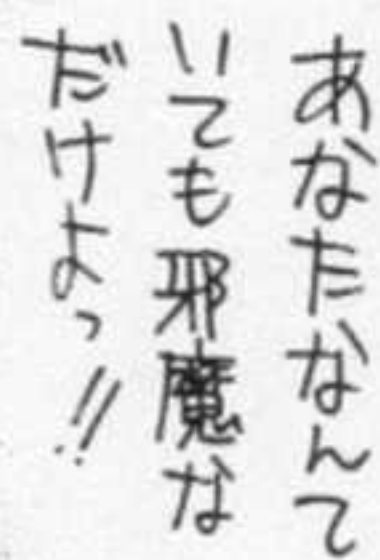 あなたなんて
いても邪魔な
だけよっ!!